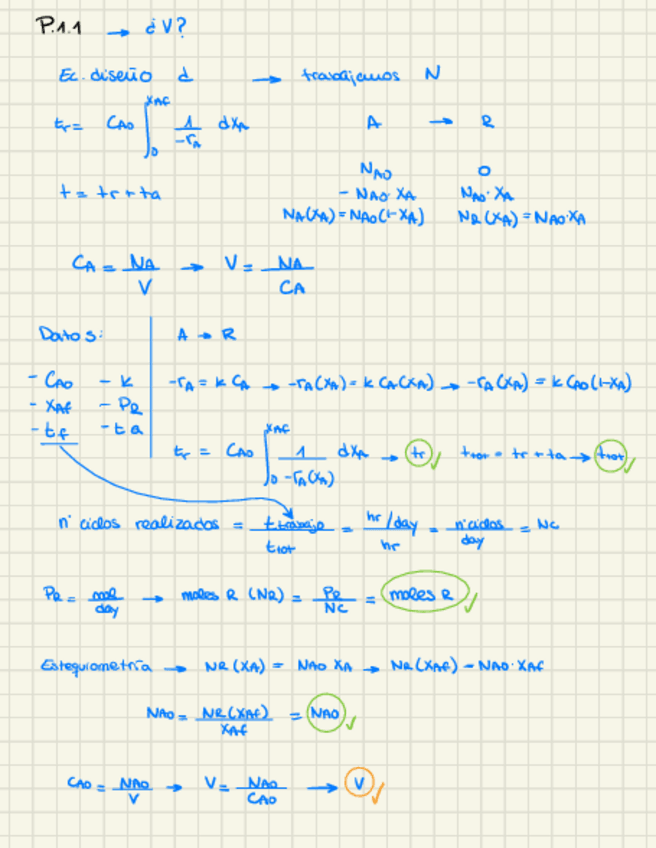 P.1.1 → ¿V?
Ec. diseño d → trabajamos N
tr = CA0 ∫₀^XAf 1/-rA dXA
A → R
NA0 0
t = tr + ta
- NA0·XA NA0·XA
NA(XA) = NA0(1-XA) NR(XA) = NA0·XA
CA = NA/V → V = NA/CA
Datos: A → R
- CA0 - k
- XAf - PR
- tf - ta
-rA = k CA → -rA(XA) = k CA(XA) → -rA(XA) = k CA0(1-XA)
tr = CA0 ∫₀^XAf 1/-rA(XA) dXA → tr ✓ ttot = tr + ta → ttot ✓
nº ciclos realizados = ttrabajo/ttot = hr/day/hr = nºciclos/day = Nc
PR = mol/day → moles R (NR) = PR/NC = moles R ✓
Estequiometría → NR(XA) = NA0 XA → NR(XAf) = NA0·XAf
NA0 = NR(XAf)/XAf = NA0 ✓
CA0 = NA0/V → V = NA0/CA0 → V ✓